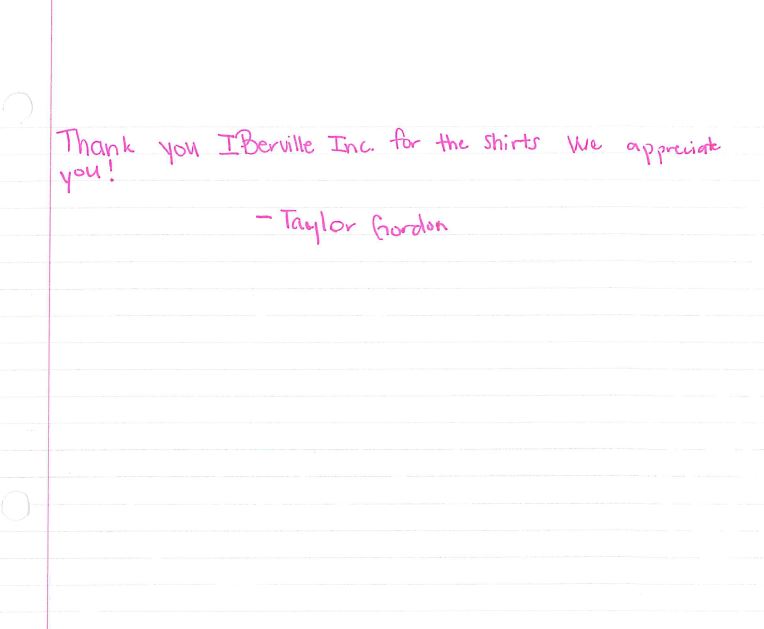 Thank you IBerville Inc. for the shirts We appreciate
you!
- Taylor Gordon